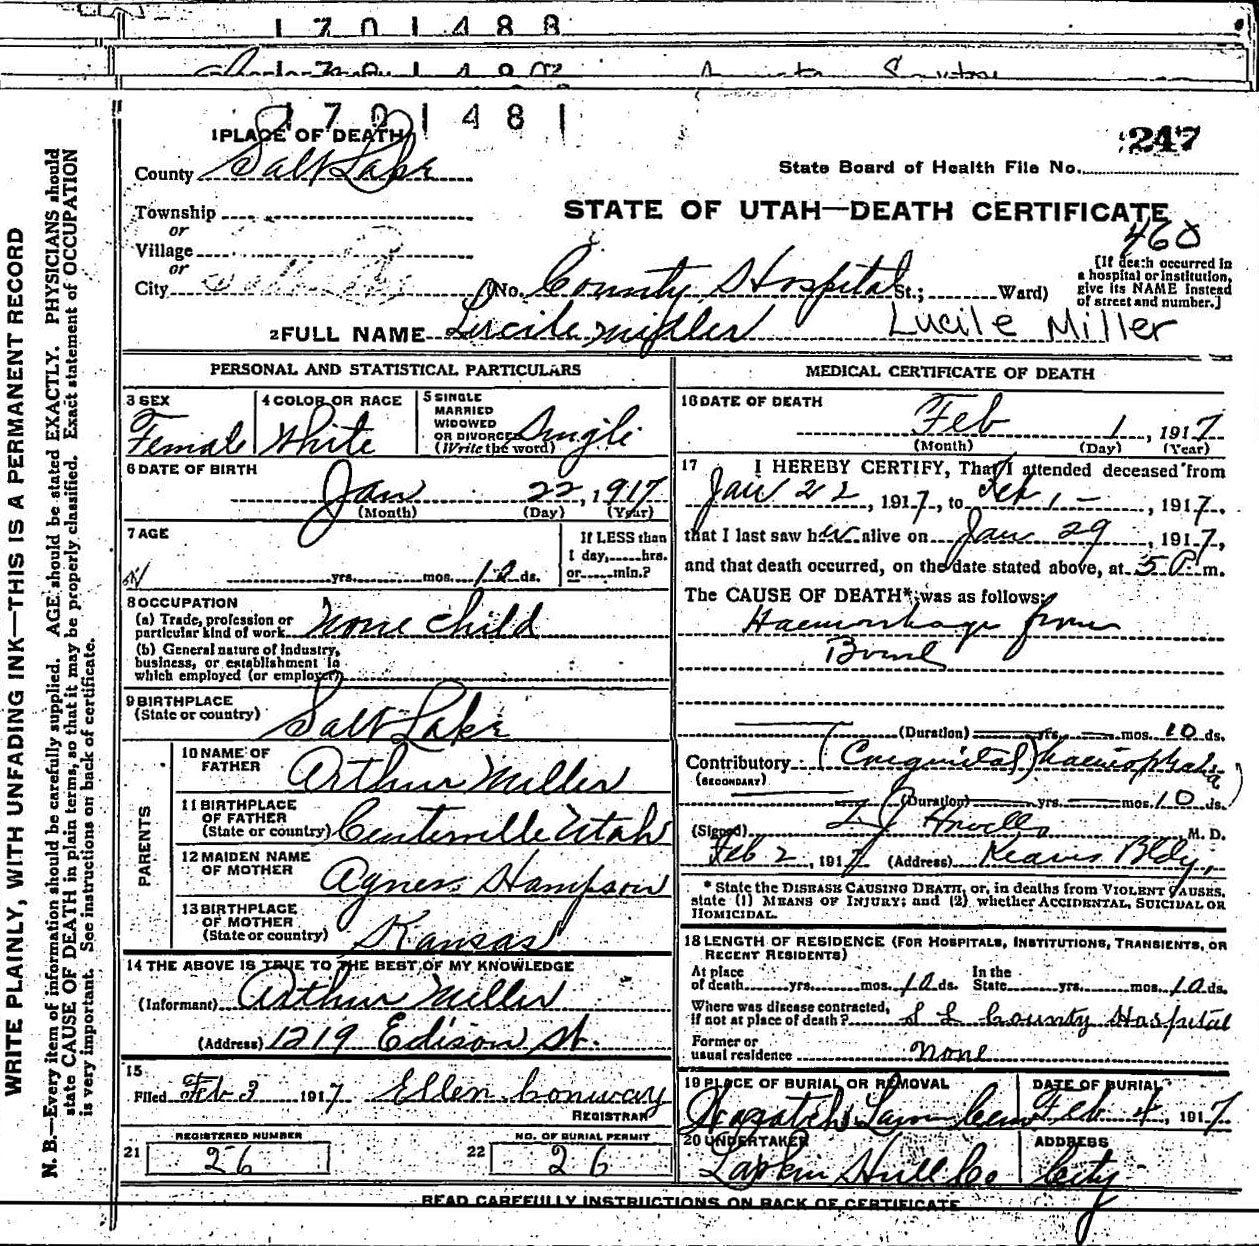 1 7 0 1 4 8 8
1 7 0 1 4 8 1
1 PLACE OF DEATH
247
State Board of Health File No.
County Salt Lake
Township
STATE OF UTAH—DEATH CERTIFICATE
or
460
Village
or
City Salt Lake (No. County Hospital St.; Ward)
[If death occurred in
a hospital or institution,
give its NAME instead
of street and number.]
2 FULL NAME Lucile Miller Lucile Miller
WRITE PLAINLY, WITH UNFADING INK—THIS IS A PERMANENT RECORD
N. B.—Every item of information should be carefully supplied. AGE should be stated EXACTLY. PHYSICIANS should
state CAUSE OF DEATH in plain terms, so that it may be properly classified. Exact statement of OCCUPATION
is very important. See instructions on back of certificate.
PERSONAL AND STATISTICAL PARTICULARS
3 SEX
Female
4 COLOR OR RACE
White
5 SINGLE
MARRIED
WIDOWED
OR DIVORCED
(Write the word)
Single
6 DATE OF BIRTH
Jan 22, 1917
(Month) (Day) (Year)
7 AGE
yrs. mos. 10 ds.
If LESS than
1 day, hrs.
or min.?
8 OCCUPATION
(a) Trade, profession or
particular kind of work None child
(b) General nature of industry,
business, or establishment in
which employed (or employer)
9 BIRTHPLACE
(State or country) Salt Lake
PARENTS
10 NAME OF
FATHER Arthur Miller
11 BIRTHPLACE
OF FATHER
(State or country) Centerville Utah
12 MAIDEN NAME
OF MOTHER Agnes Hampson
13 BIRTHPLACE
OF MOTHER
(State or country) Kansas
14 THE ABOVE IS TRUE TO THE BEST OF MY KNOWLEDGE
(Informant) Arthur Miller
(Address) 1219 Edison St.
15
Filed Feb 3 1917 Ellen Conway
REGISTRAR
REGISTERED NUMBER
21 26
NO. OF BURIAL PERMIT
22 26
MEDICAL CERTIFICATE OF DEATH
16 DATE OF DEATH
Feb 1, 1917
(Month) (Day) (Year)
17 I HEREBY CERTIFY, That I attended deceased from
Jan 22, 1917, to Feb 1, 1917.
that I last saw her alive on Jan 29, 1917,
and that death occurred, on the date stated above, at 5 P. m.
The CAUSE OF DEATH* was as follows:
Haemorrhage from
Bowel
(Duration) yrs. mos. 10 ds.
Contributory (Congenital) haemophelia
(SECONDARY)
(Duration) yrs. mos. 10 ds.
(Signed) M. D.
Feb 2, 1917 (Address) Kearns Bldg.,
* State the DISEASE CAUSING DEATH, or, in deaths from VIOLENT CAUSES,
state (1) MEANS OF INJURY; and (2) whether ACCIDENTAL, SUICIDAL OR
HOMICIDAL.
18 LENGTH OF RESIDENCE (FOR HOSPITALS, INSTITUTIONS, TRANSIENTS, OR
RECENT RESIDENTS)
At place
of death yrs. mos. 10 ds.
In the
State yrs. mos. 10 ds.
Where was disease contracted,
if not at place of death? S L County Hospital
Former or
usual residence none
19 PLACE OF BURIAL OR REMOVAL
Wasatch Lawn Cem
DATE OF BURIAL
Feb 4, 1917
20 UNDERTAKER
Larkin Hull Co
ADDRESS
City
READ CAREFULLY INSTRUCTIONS ON BACK OF CERTIFICATE